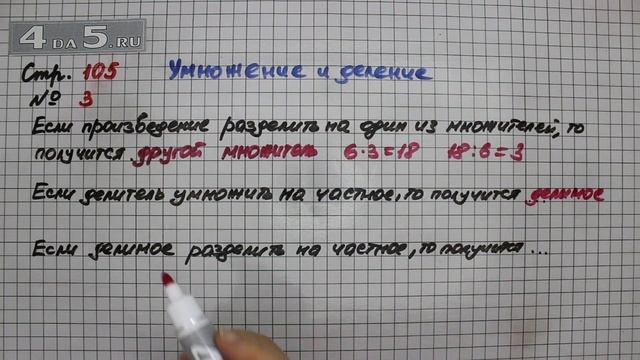 4DA5.RU
Стр. 105 Умножение и деление
№ 3
Если произведение разделить на один из множителей, то
получится другой множитель 6·3=18 18:6=3
Если делитель умножить на частное, то получится делимое
Если делимое разделить на частное, то получится ...